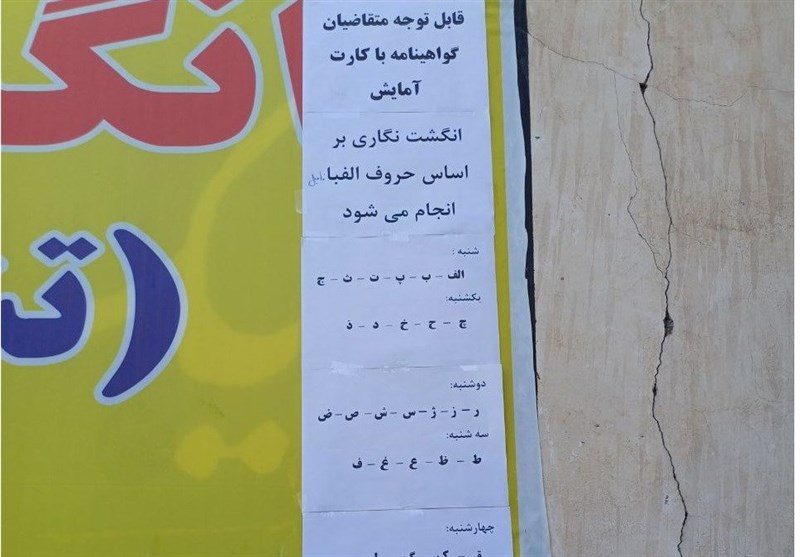 قابل توجه متقاضیان
گواهینامه با کارت
آمایش
انگشت نگاری بر
اساس حروف الفبا
انجام می شود
شنبه :
الف – ب – پ – ت – ث – ج
یکشنبه:
چ – ح – خ – د – ذ
دوشنبه:
ر – ز – ژ – س – ش – ص – ض
سه شنبه:
ط – ظ – ع – غ – ف
چهارشنبه: